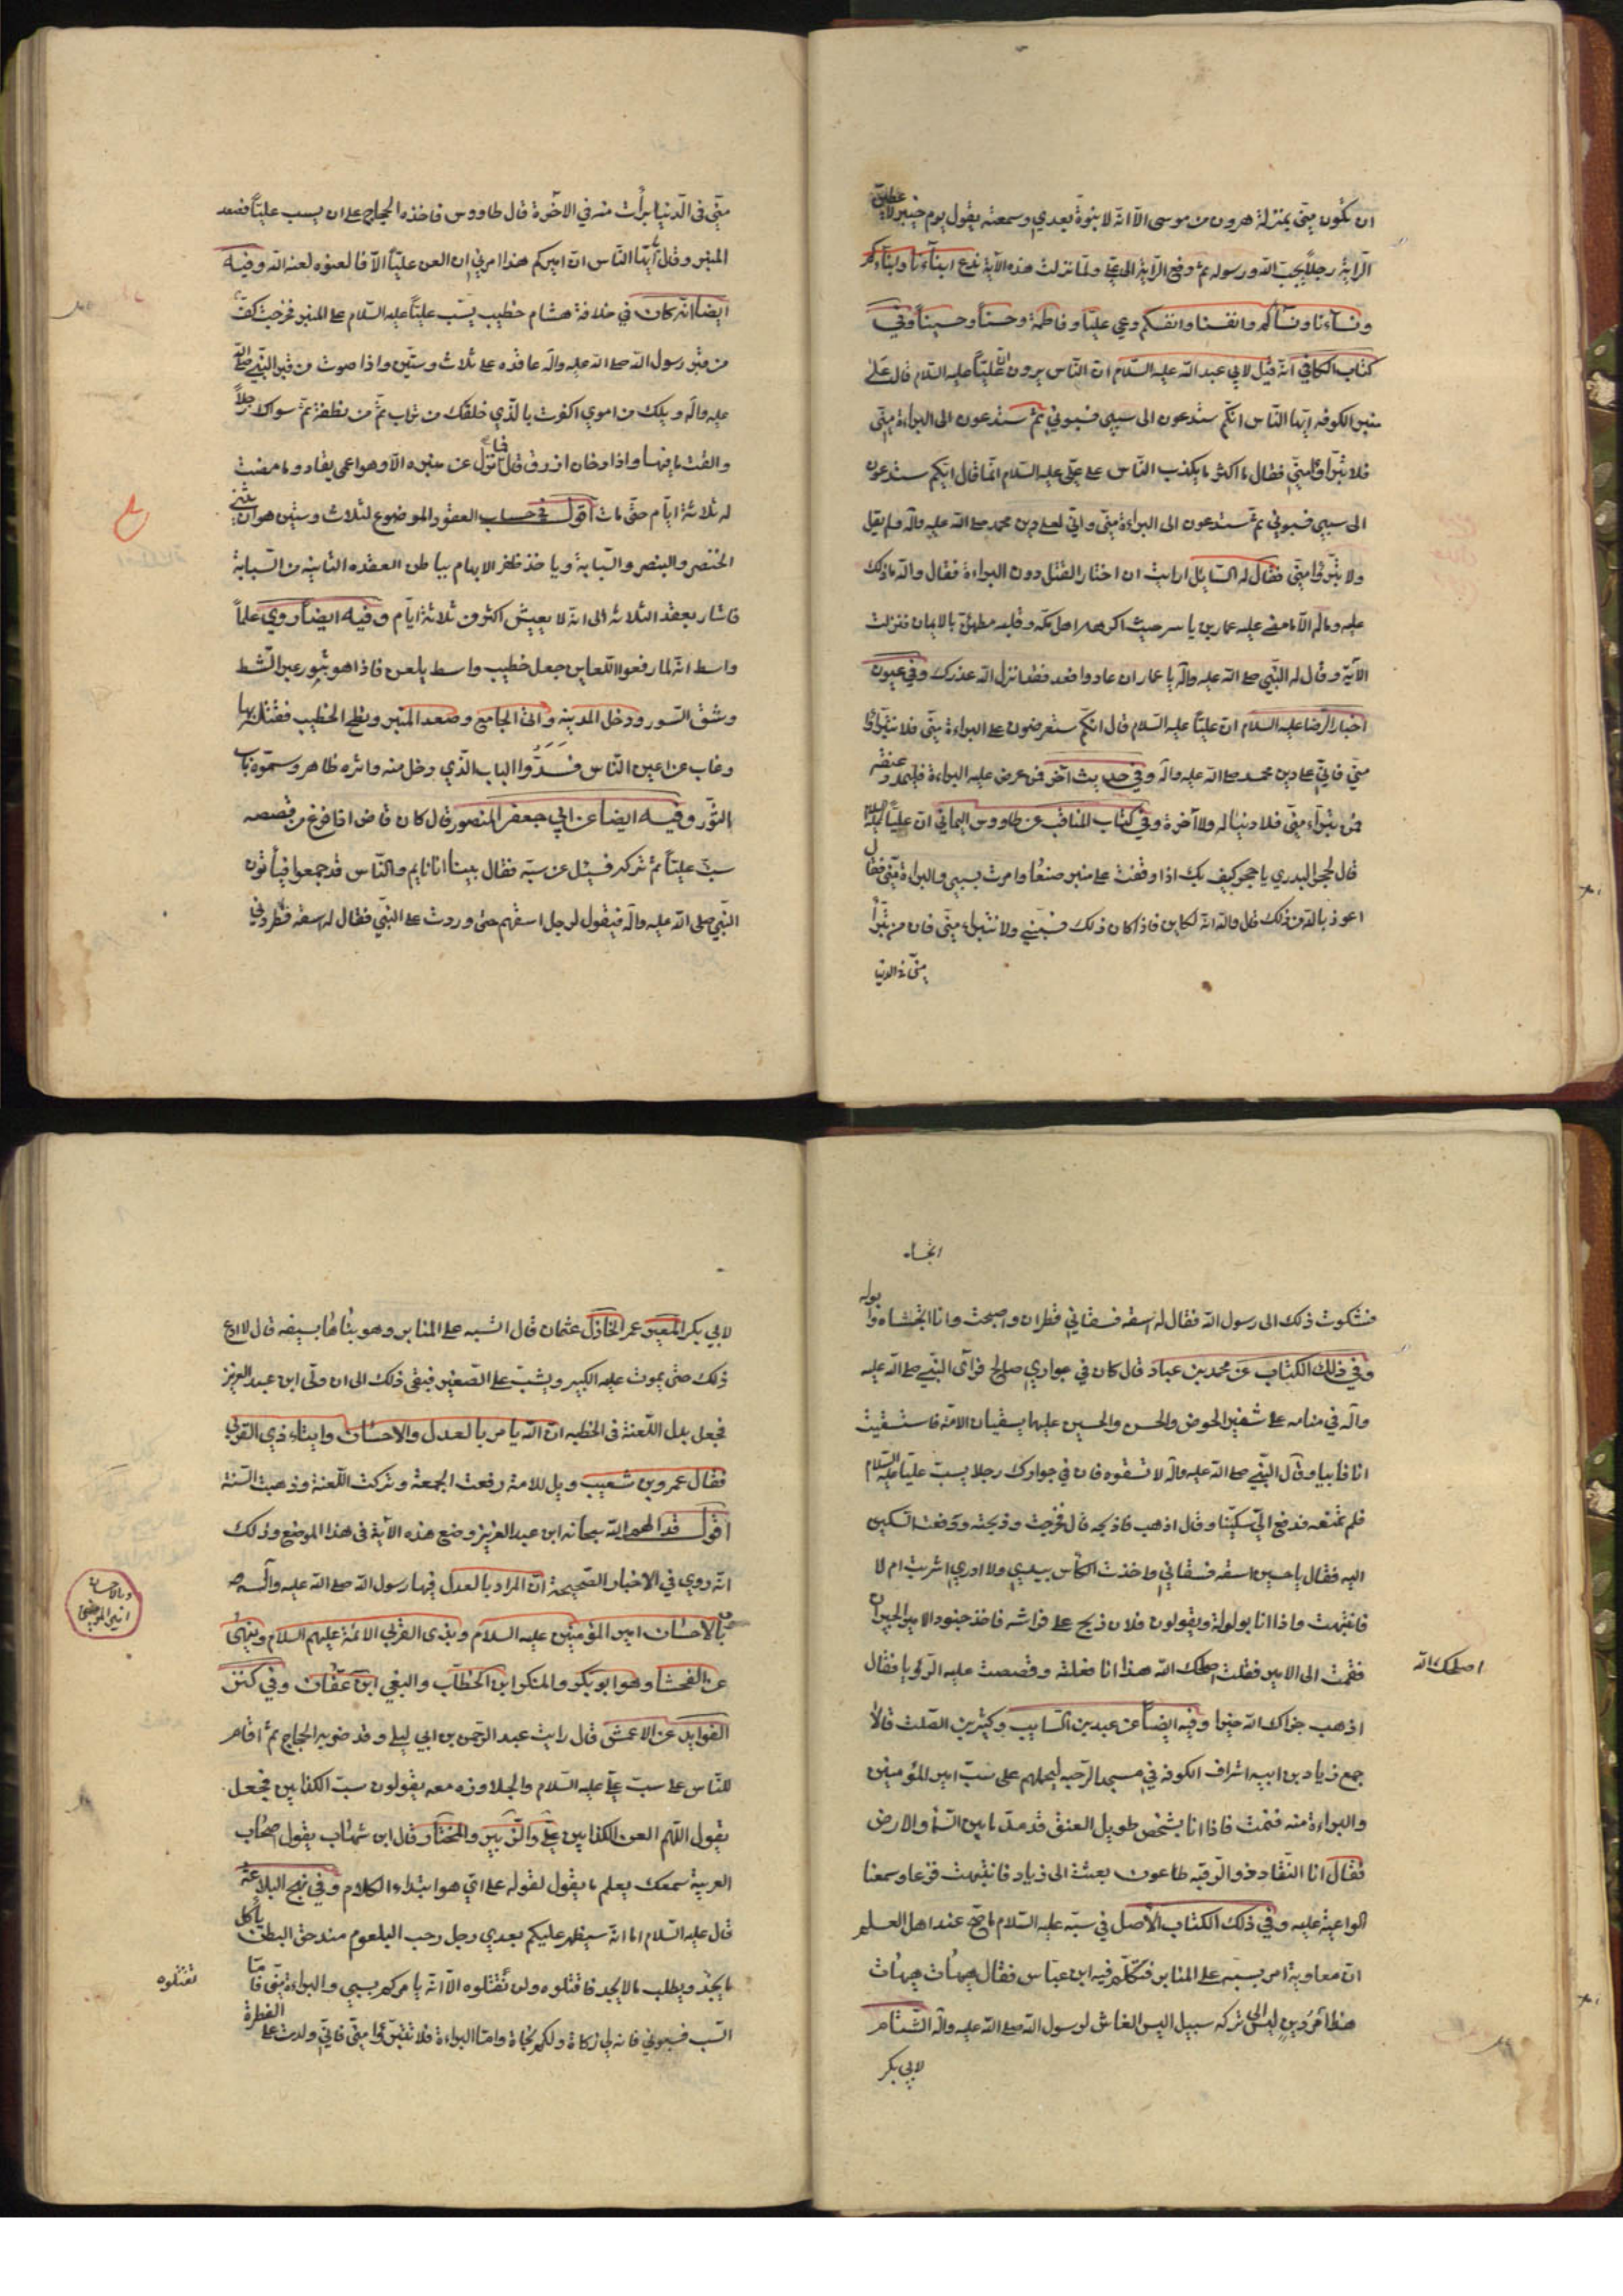 ان تكون منّي بمنزلة هرون من موسى الّا انّه لا نبوّة بعدي وسمعته يقول يوم خيبر لاعطينّ
الرّاية رجلاً يحبّ الله ورسوله ثم دفع الرّاية الى عليّ ولمّا نزلت هذه الآية ندع ابناءنا وابناءكم
ونسآءنا ونسآءكم وانفسنا وانفسكم دعي عليّاً وفاطمة وحسناً وحسيناً وفي
كتاب الكافي انّه قيل لابي عبد الله عليه السّلام انّ النّاس يروون انّ عليّاً عليه السّلام قال على
منبر الكوفه ايّها النّاس انّكم ستدعون الى سبيي فسبوني ثمّ ستدعون الى البراءة منّي
فلا تبرّاوا منّي فقال ما اكثر ما يكذب النّاس على عليّ عليه السّلام انّما قال انّكم ستدعون
الى سبيي فسبوني ثمّ ستدعون الى البراءة منّي وانّي لعلى دين محمد صلى الله عليه وآله ولم يقل
ولا تبرّؤا منّي فقال له السّايل ارايت ان اختار القتل دون البراءة فقال والله ما ذلك
عليه وماله الّا ما مضى عليه عمار بن ياسر حيث اكرهه اهل مكّه وقلبه مطمئنّ بالايمان فنزلت
الآية وقال له النّبي صلى الله عليه وآله يا عمار ان عادوا فعد فقد انزل الله عذرك وفي عيون
اخبار الرّضا عليه السلام انّ عليّاً عليه السّلام قال انّكم ستعرضون على البراءة منّي فلا تتبرّاوا
منّي فانّي على دين محمد صلى الله عليه وآله وفي حديث اخر فمن عرض عليه البراءة فليمدد عنقه
فمن تبرّاء منّي فلا دنيا له ولا آخرة وفي كتاب المناقب عن طاووس اليماني انّ عليّاً عليه السلام
قال لحجر البدري يا حجر كيف بك اذا وقفت على منبر صنعا وامرت بسبيي والبراءة منّي فقال
اعوذ بالله من ذلك قال والله انّه لكاين فاذا كان ذلك فسبّني ولا تتبراء منّي فان من تبرّأ
منّي في الدنيا
منّي في الدّنيا برأت منه في الاخرة قال طاووس فاخذه الحجاج على ان يسب عليّاً فصعد
المنبر وقال ايّها النّاس انّ اميركم هذا امرني ان العن عليّاً الّا فالعنوه لعنه الله وفيه
ايضا انّه كان في خلافة هشام خطيب يسّب عليّاً عليه السّلام على المنبر فخرجت كفّ
من قبر رسول الله صلى الله عليه وآله عاقده على ثلاث وستّين واذا صوت من قبر النّبي صلى الله
عليه وآله ويلك من اموي اكفرت بالّذي خلقك من تراب ثمّ من نطفة ثمّ سواك رجلاً
والقت ما فيها واذا دخان ازرق قال فما نزل عن منبره الّا وهو اعمى يقاد وما مضت
له ثلاثة ايّام حتّى مات اقول في حساب العقود الموضوع لثلاث وستين هو ان يثني
الخنصر والبنصر والسّبابة وياخذ ظفر الابهام بباطن العقده الثانية من السّبابة
فاشار بعقد الثلاثه الى انّه لا يعيش اكثر من ثلاثة ايّام وفيه ايضاً روي علماً
واسط انّه لما رفعوا اللّعاين جعل خطيب واسط يلعن فاذا هو بثور عبر الشّط
وشق السّور ودخل المدينه واتى الجامع وصعد المنبر ونطح الخطيب فقتله بها
وغاب عن اعين النّاس فسدّوا الباب الّذي دخل منه واثره ظاهر وسموّه باب
الثّور وفيه ايضا عن ابي جعفر المنصور قال كان قاض اذا فرغ من قصصه
سبّ عليّاً ثم تركه فسئل عن سبّه فقال بينا انا نايم والنّاس قد جمعوا فيأتون
النّبي صلى الله عليه وآله فيقول لرجل اسقهم حتى وردت على النبّي فقال له اسقه فطردني
انخساه
فشكوت ذلك الى رسول الله فقال له اسقه فسقاني قطران واصبحت وانا انخشاه وابوله
وفي ذلك الكتاب عن محمد بن عباد قال كان في جواري صالح فرآى النبّي صلى الله عليه
وآله في منامه على شفير الحوض والحسن والحسين عليهما يسقيان الامّة فاستقيت
انا فابيا وقال النبّي صلى الله عليه وآله لا تسقوه فان في جوارك رجلا يسبّ عليّا عليه السّلام
فلم تمنعه فدفع اليّ سكّينا وقال اذهب فاذبحه قال فخرجت وذبحته ودفعت السكين
اليه فقال يا حسين اسقه فسقاني واخذت الكأس بيدي ولا ادري اشربت ام لا
فانتبهت واذا انا بولولة ويقولون فلان ذبح على فراشه فاخذ جنود الامير الجيران
فقمت الى الامير فقلت اصلحك الله هذا انا فعلته وقصصت عليه الرّؤيا فقال
اصلحك الله
اذهب جزاك الله خيرا وفيه ايضاً عن عبد بن السّايب وكثير بن الصّلت قالا
جمع زياد بن ابيه اشراف الكوفه في مسجد الرّحبه ليحملهم على سبّ امير المؤمنين
والبراءة منه فنمت فاذا انا بشخص طويل العنق قد سدّ ما بين السّما والارض
فقال انا النّقاد ذو الرّقبه طاعون بعثت الى زياد فانتبهت فزعا وسمعنا
الواعية عليه وفي ذلك الكتاب الاصل في سبّه عليه السّلام ما صّح عند اهل العلم
انّ معاوية امر بسبّه على المنابر فتكلّم فيه ابن عباس فقال هيهات هيهات
هذا امر دين ليس الى تركه سبيل اليس الغاش لرسول الله صلى الله عليه وآله الشّتام
لابي بكر
لابي بكر المعيّر عمر الخاذل عثمان قال اتسبه على المنابر وهو بناها بسيفه قال لا ادع
ذلك حتى يموت عليه الكبير ويشبّ على الصّغير فبقى ذلك الى ان ولّى ابن عبد العزيز
فجعل بدل اللّعنة في الخطبه انّ الله يامر بالعدل والاحسان وايتاء ذي القربى
فقال عمرو بن شعيب ويل للامة رفعت الجمعة وتركت اللّعنة وذهبت السّنة
اقول قد الهم الله سبحانه ابن عبد العزيز وضع هذه الآية في هذا الموضع وذلك
انّه روي في الاخبار الصّحيحة انّ المراد بالعدل فيها رسول الله صلى الله عليه وآله
وبالاحسان امير المؤمنين
وبالاحسان امير المؤمنين عليه السلام وبذى القربى الائمّة عليهم السلام وينهى
عن الفحشا وهو ابو بكر والمنكر ابن الخطّاب والبغي ابن عفّان وفي كنز
الفوايد عن الاعمش قال رايت عبد الرّحمن بن ابي ليلى وقد ضربه الحجاج ثمّ اقامه
للنّاس على سبّ عليّ عليه السّلام والجلاوزه معه يقولون سبّ الكذابين فجعل
يقول اللّهم العن الكذابين عليّ والزّبير والمختار وقال ابن شهاب يقول اصحاب
العربية سمعك يعلم ما يقول لقوله على اي هو ابتداء الكلام وفي نهج البلاغة
قال عليه السّلام اما انّه سيظهر عليكم بعدي رجل رحب البلعوم مندحق البطن ياكل
ما يجد ويطلب ما لا يجد فاقتلوه ولن تقتلوه الّا انّه يامركم بسبي والبراءة منّي فامّا
تقتلوه
السّب فسبوني فانه لي زكاة ولكم نجاة وامّا البراءة فلا تتبرّؤا منّي فانّي ولدت على الفطرة